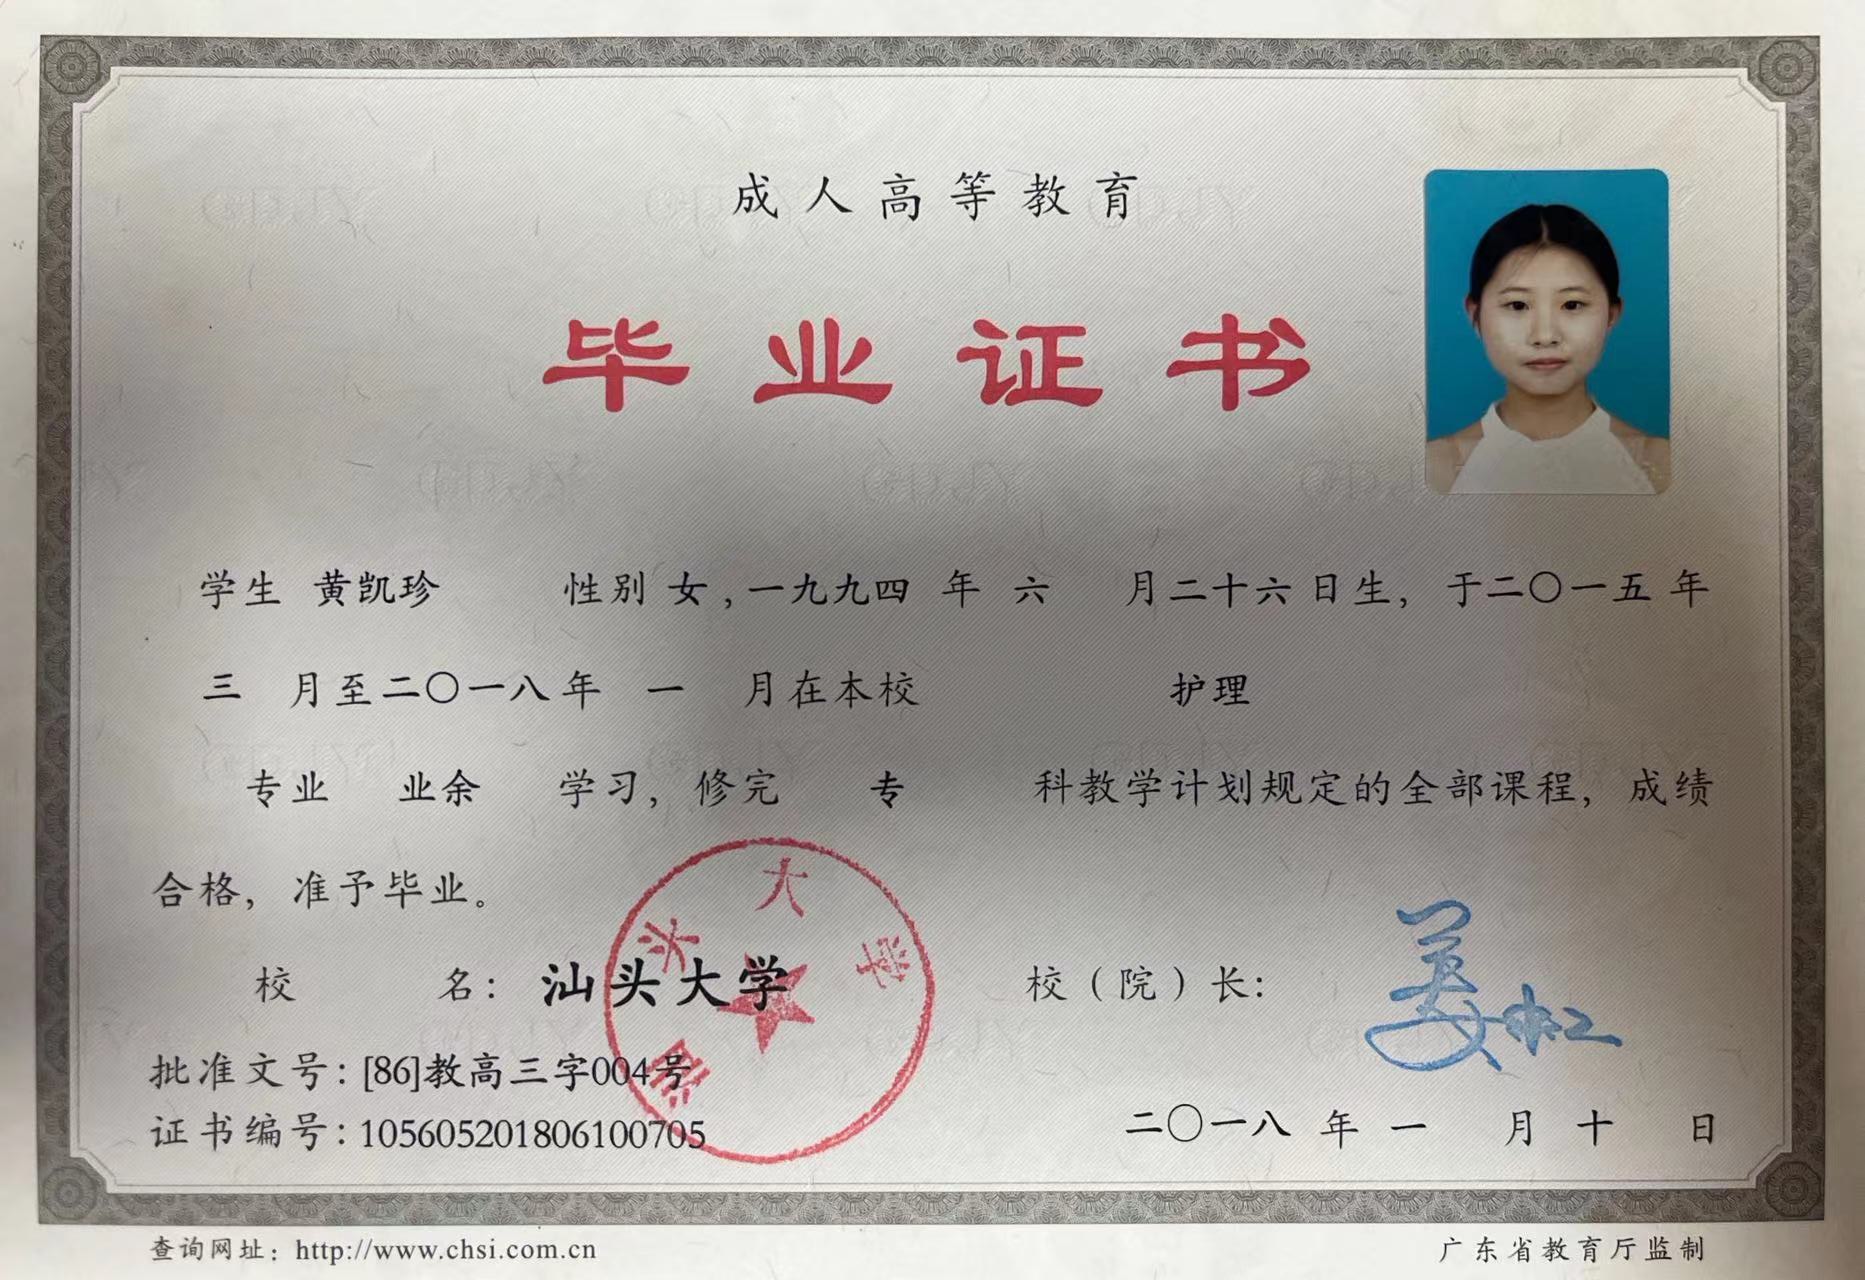 成人高等教育
毕业证书
学生 黄凯珍 性别 女,一九九四 年 六 月二十六日生，于二〇一五 年
三 月至二〇一八年 一 月在本校 护理
专业 业余 学习，修完 专 科教学计划规定的全部课程，成绩
合格，准予毕业。
校 名：汕头大学
校（院）长：
汕头大学
批准文号：[86]教高三字004号
证书编号：105605201806100705
二〇一八 年 一 月 十 日
查询网址：http://www.chsi.com.cn
广东省教育厅监制